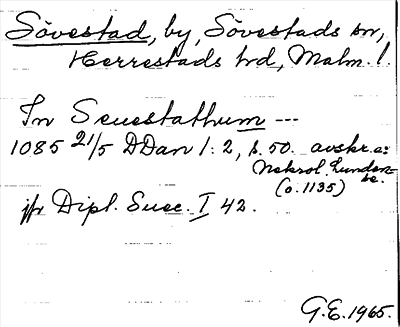 Sövestad, by, Sövestads sn,
Herrestads hd, Malm. l.
In Seuestathum ---
1085 21/5 DDan 1:2, s. 50. avskr. a:
Nekrol. Lunden-
se.
(o. 1135)
jfr Dipl. Suec. I 42.
G.E. 1965.